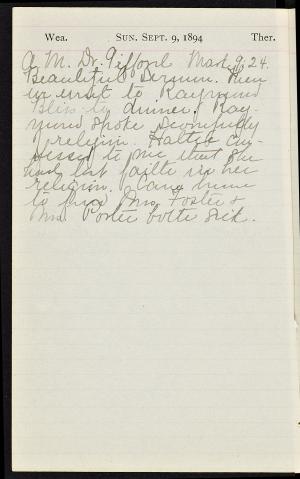 Wea. SUN. SEPT. 9, 1894 Ther.
A.M. Dr. Gifford Mark 9:24.
Beautiful Sermon. Then
we went to Raymond
Blis to dinner. Ray-
mond spoke scornfully
of religion. Hattie
to me that she
had lost faith in her
religion. Came home
to find Mrs Foster &
Mrs Porter both sick.